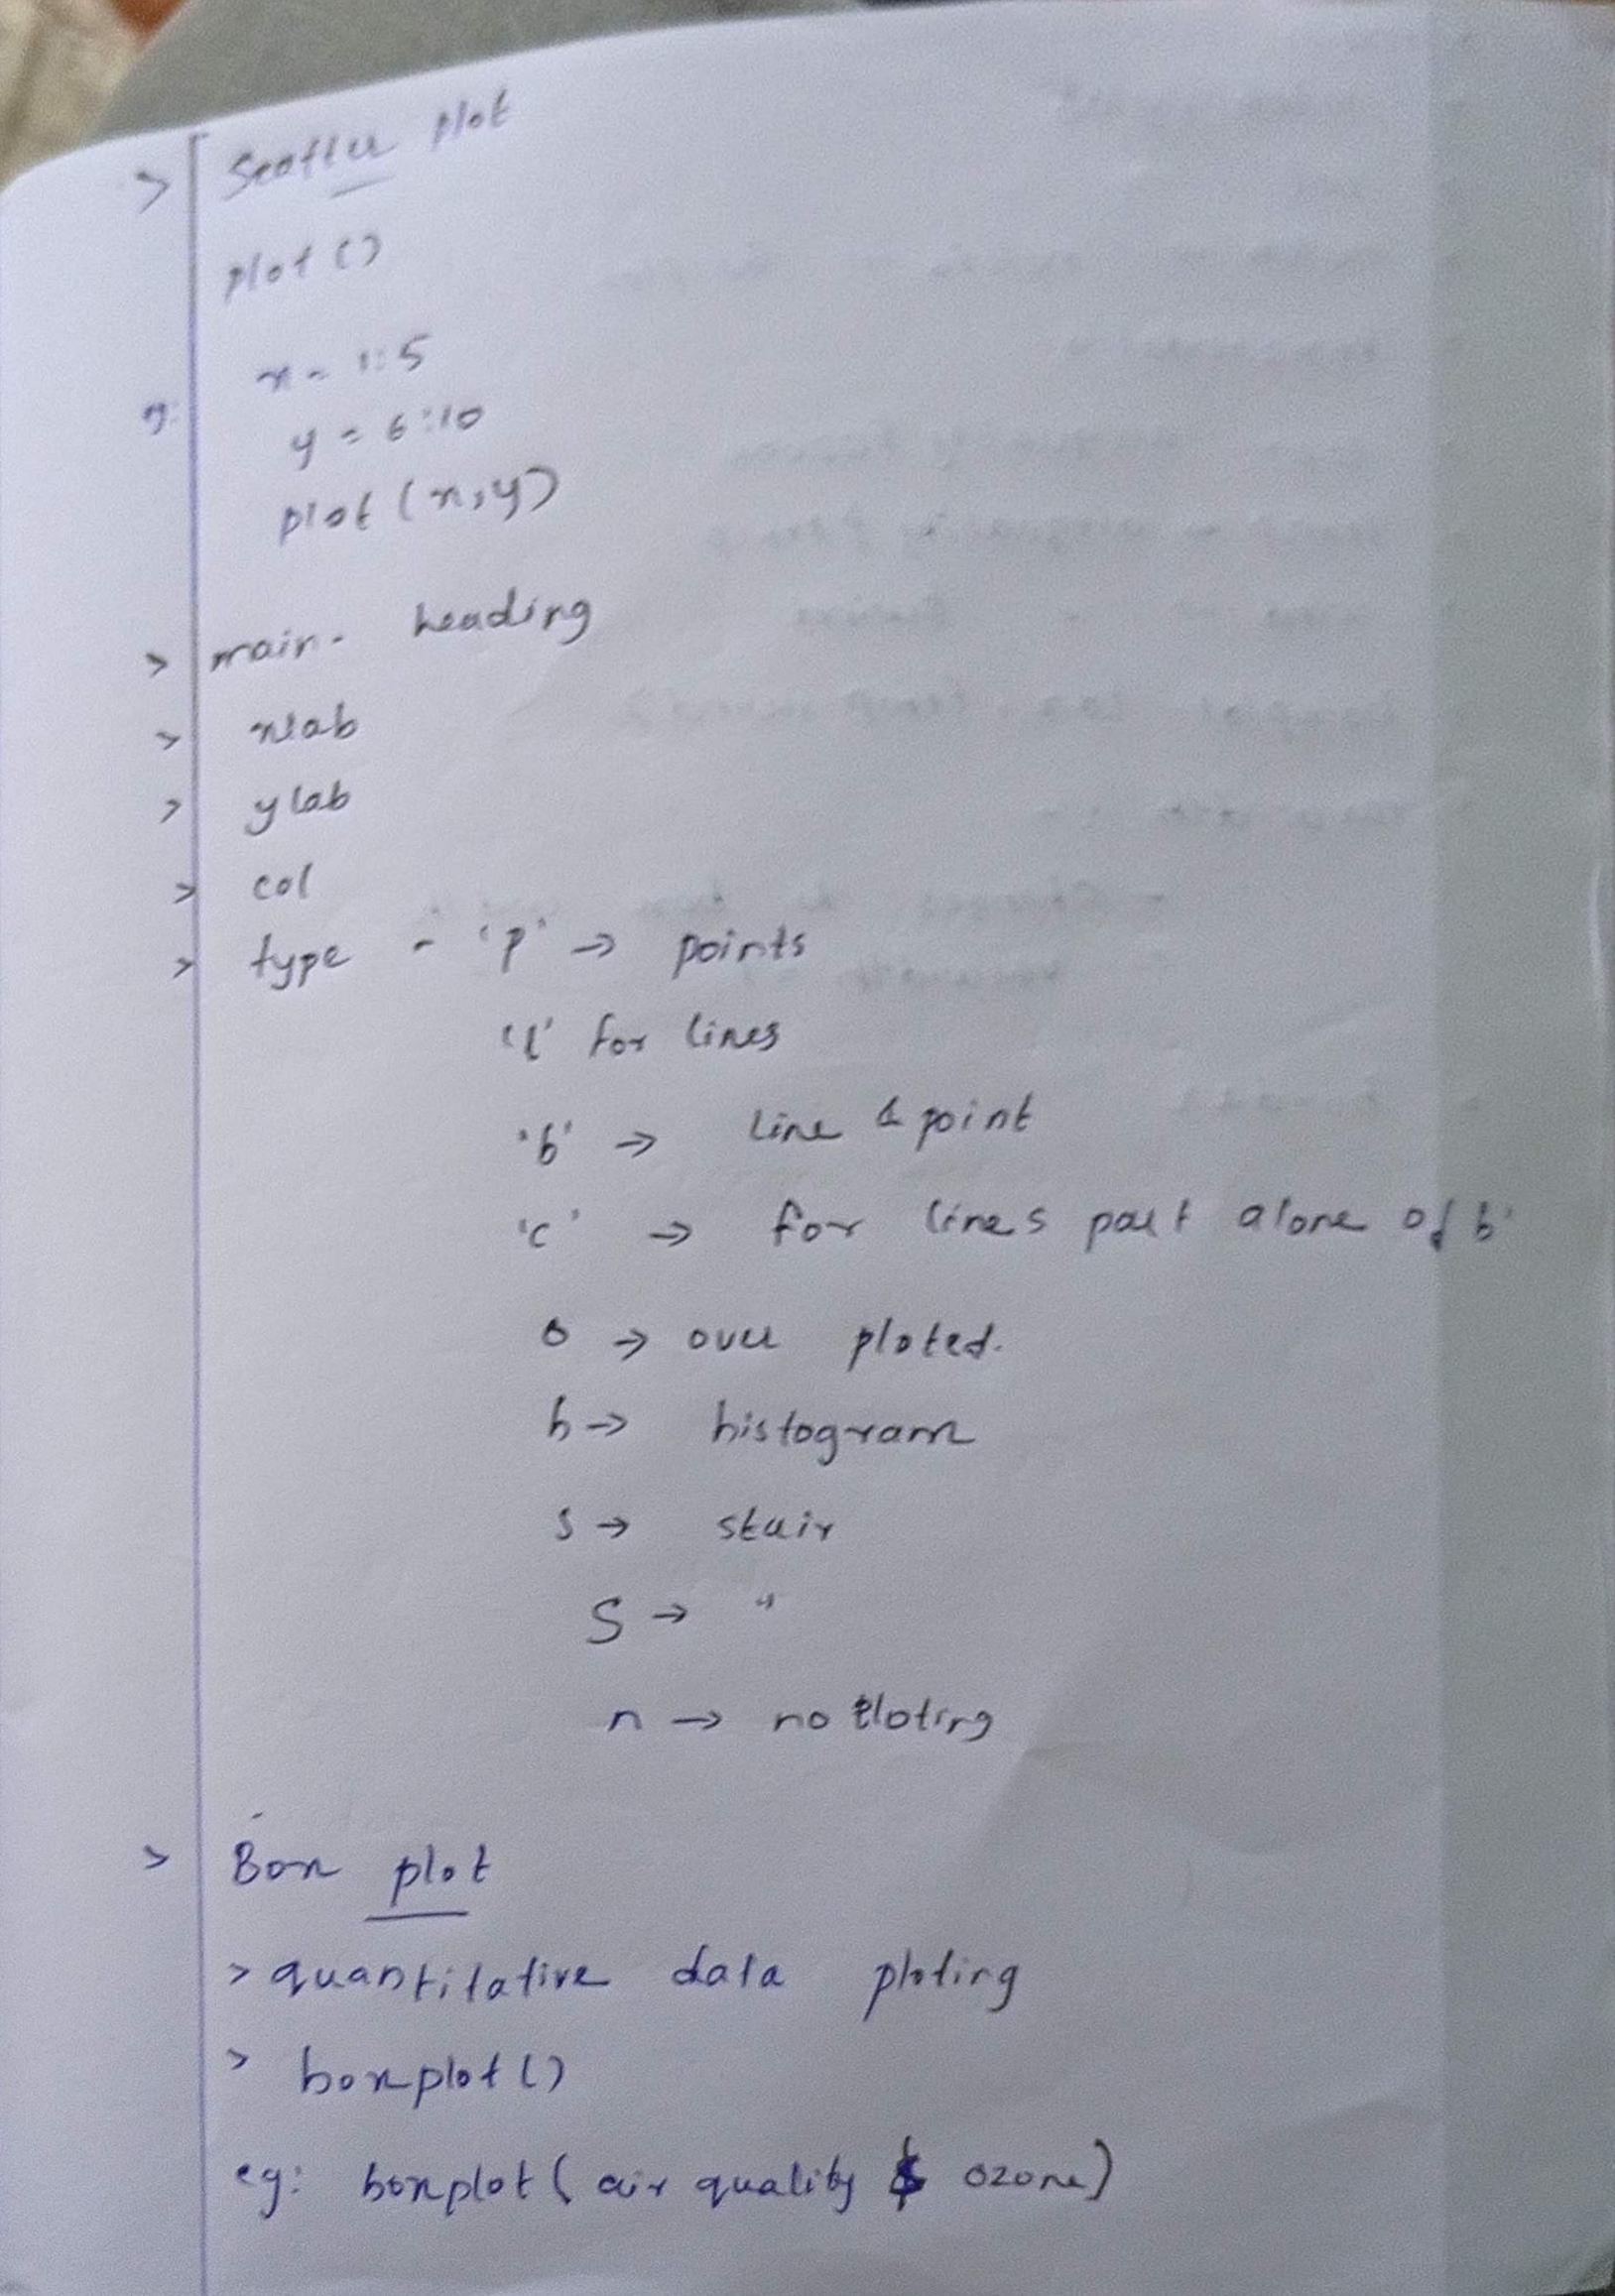 > Scatter plot
plot ()
x = 1:5
eg: y = 6:10
plot (x,y)
> main - heading
> xlab
> ylab
> col
> type - 'p' → points
'l' for lines
'b' → line & point
'c' → for lines part alone of b'
o → over ploted.
h → histogram
s → stair
S → "
n → no ploting
> Box plot
> quantitative data ploting
> boxplot ()
eg: boxplot ( air quality $ ozone)